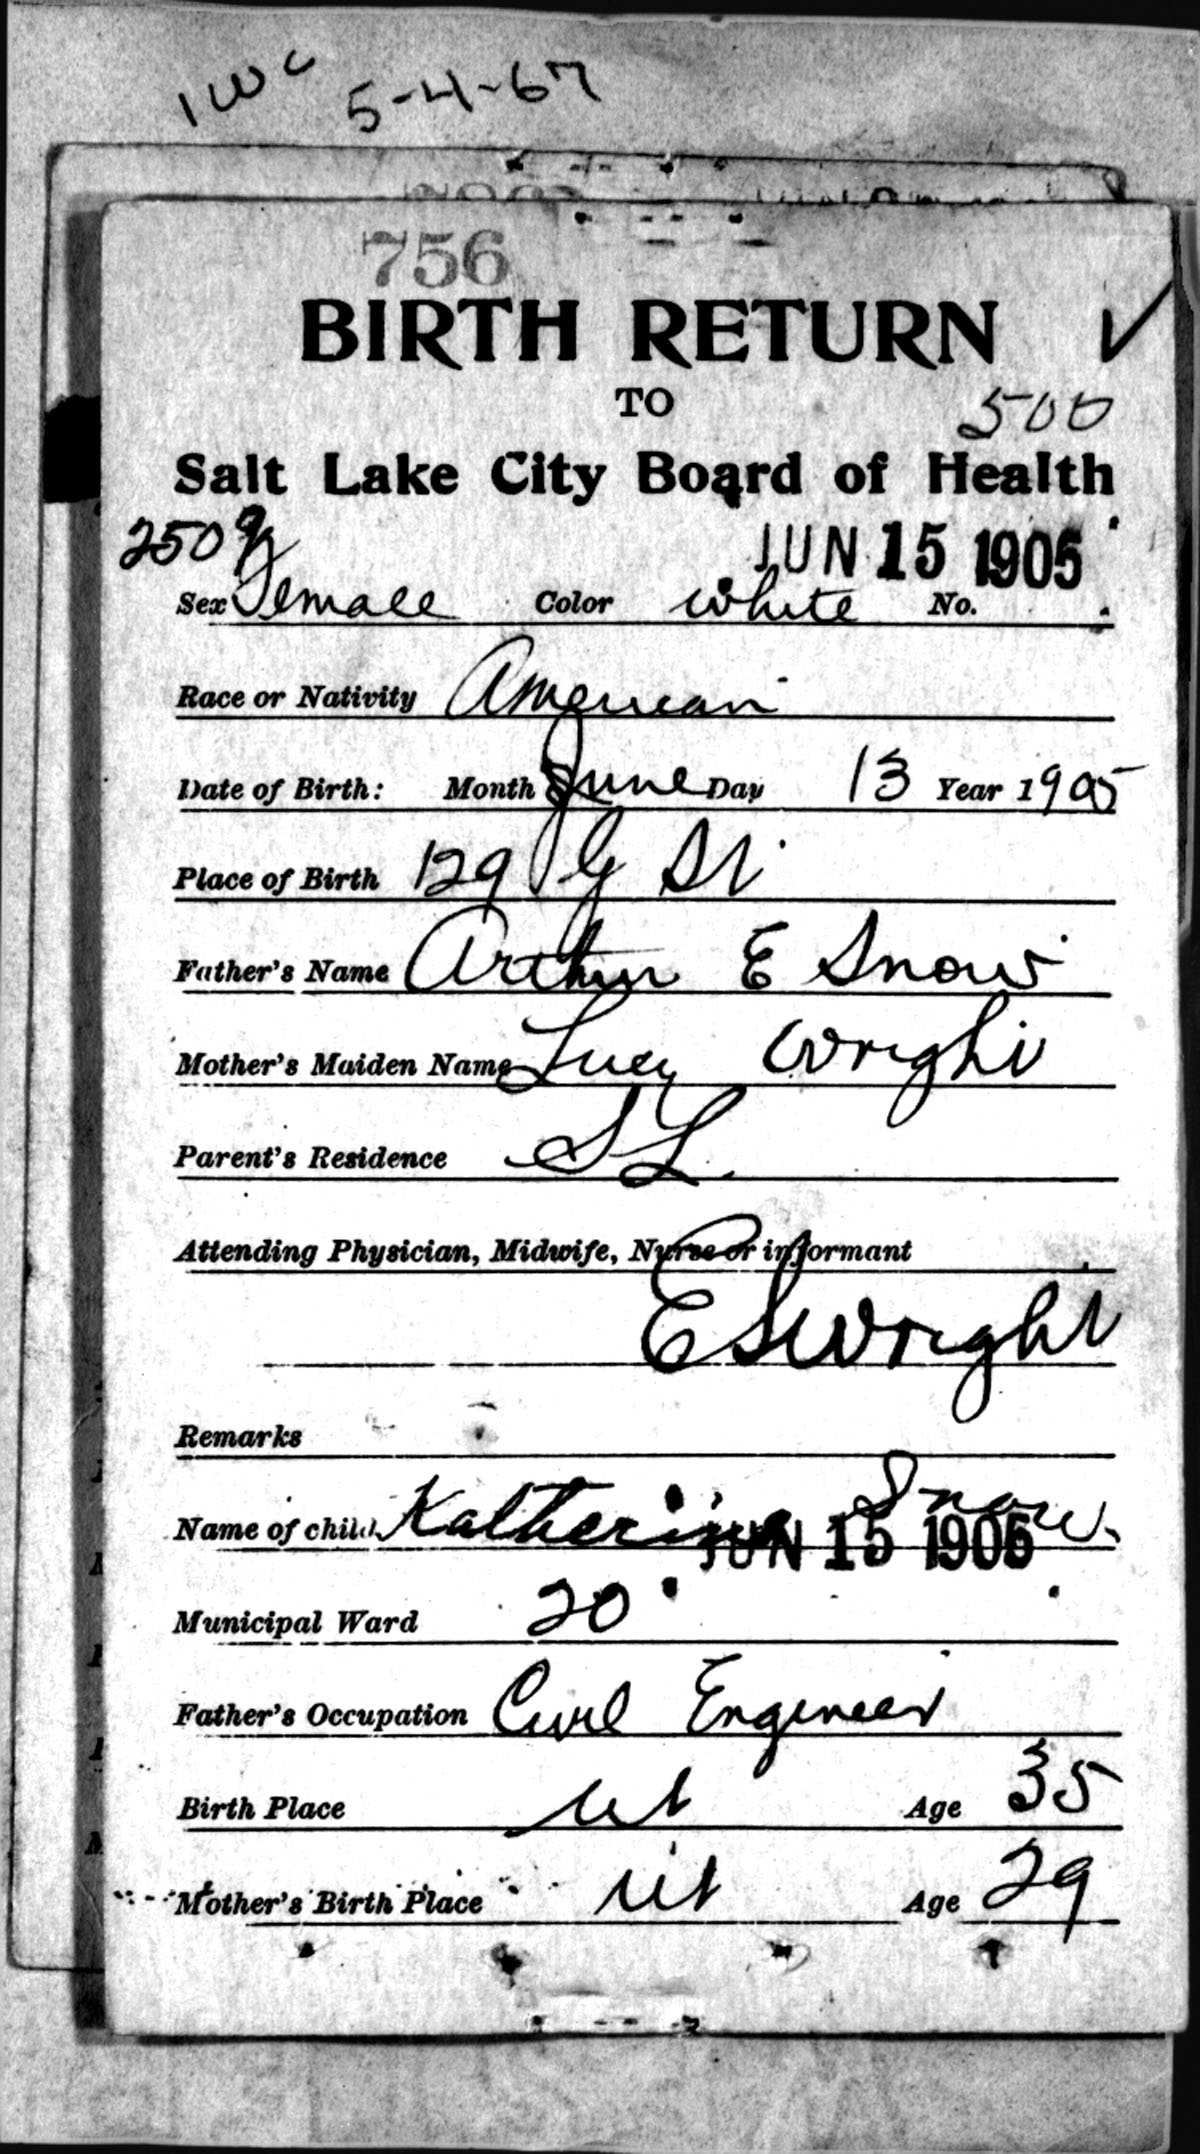 1wc 5-4-67
756
BIRTH RETURN
TO
500
Salt Lake City Board of Health
250
JUN 15 1905
Sex Female Color white No.
Race or Nativity American
Date of Birth: Month June Day 13 Year 1905
Place of Birth 129 G St
Father's Name Arthur E Snow
Mother's Maiden Name Lucy Wright
Parent's Residence SL
Attending Physician, Midwife, Nurse or informant
E S Wright
Remarks
Name of child Katherine Snow.
JUN 15 1905
Municipal Ward 20
Father's Occupation Civil Engineer
Birth Place Ut Age 35
Mother's Birth Place Ut Age 29